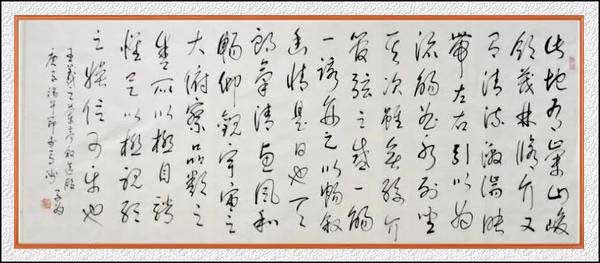 此地有崇山峻
領茂林脩竹又
有清流激湍映
帶左右引以為
流觴曲水列坐
其次雖無絲竹
管弦之盛一觴
一詠亦足以暢叙
幽情是日也天
朗氣清惠風和
暢仰觀宇宙之
大俯察品類之
盛所以遊目騁
懷足以極視聽
之娛信可樂也
王羲之蘭亭叙
庚子端午節